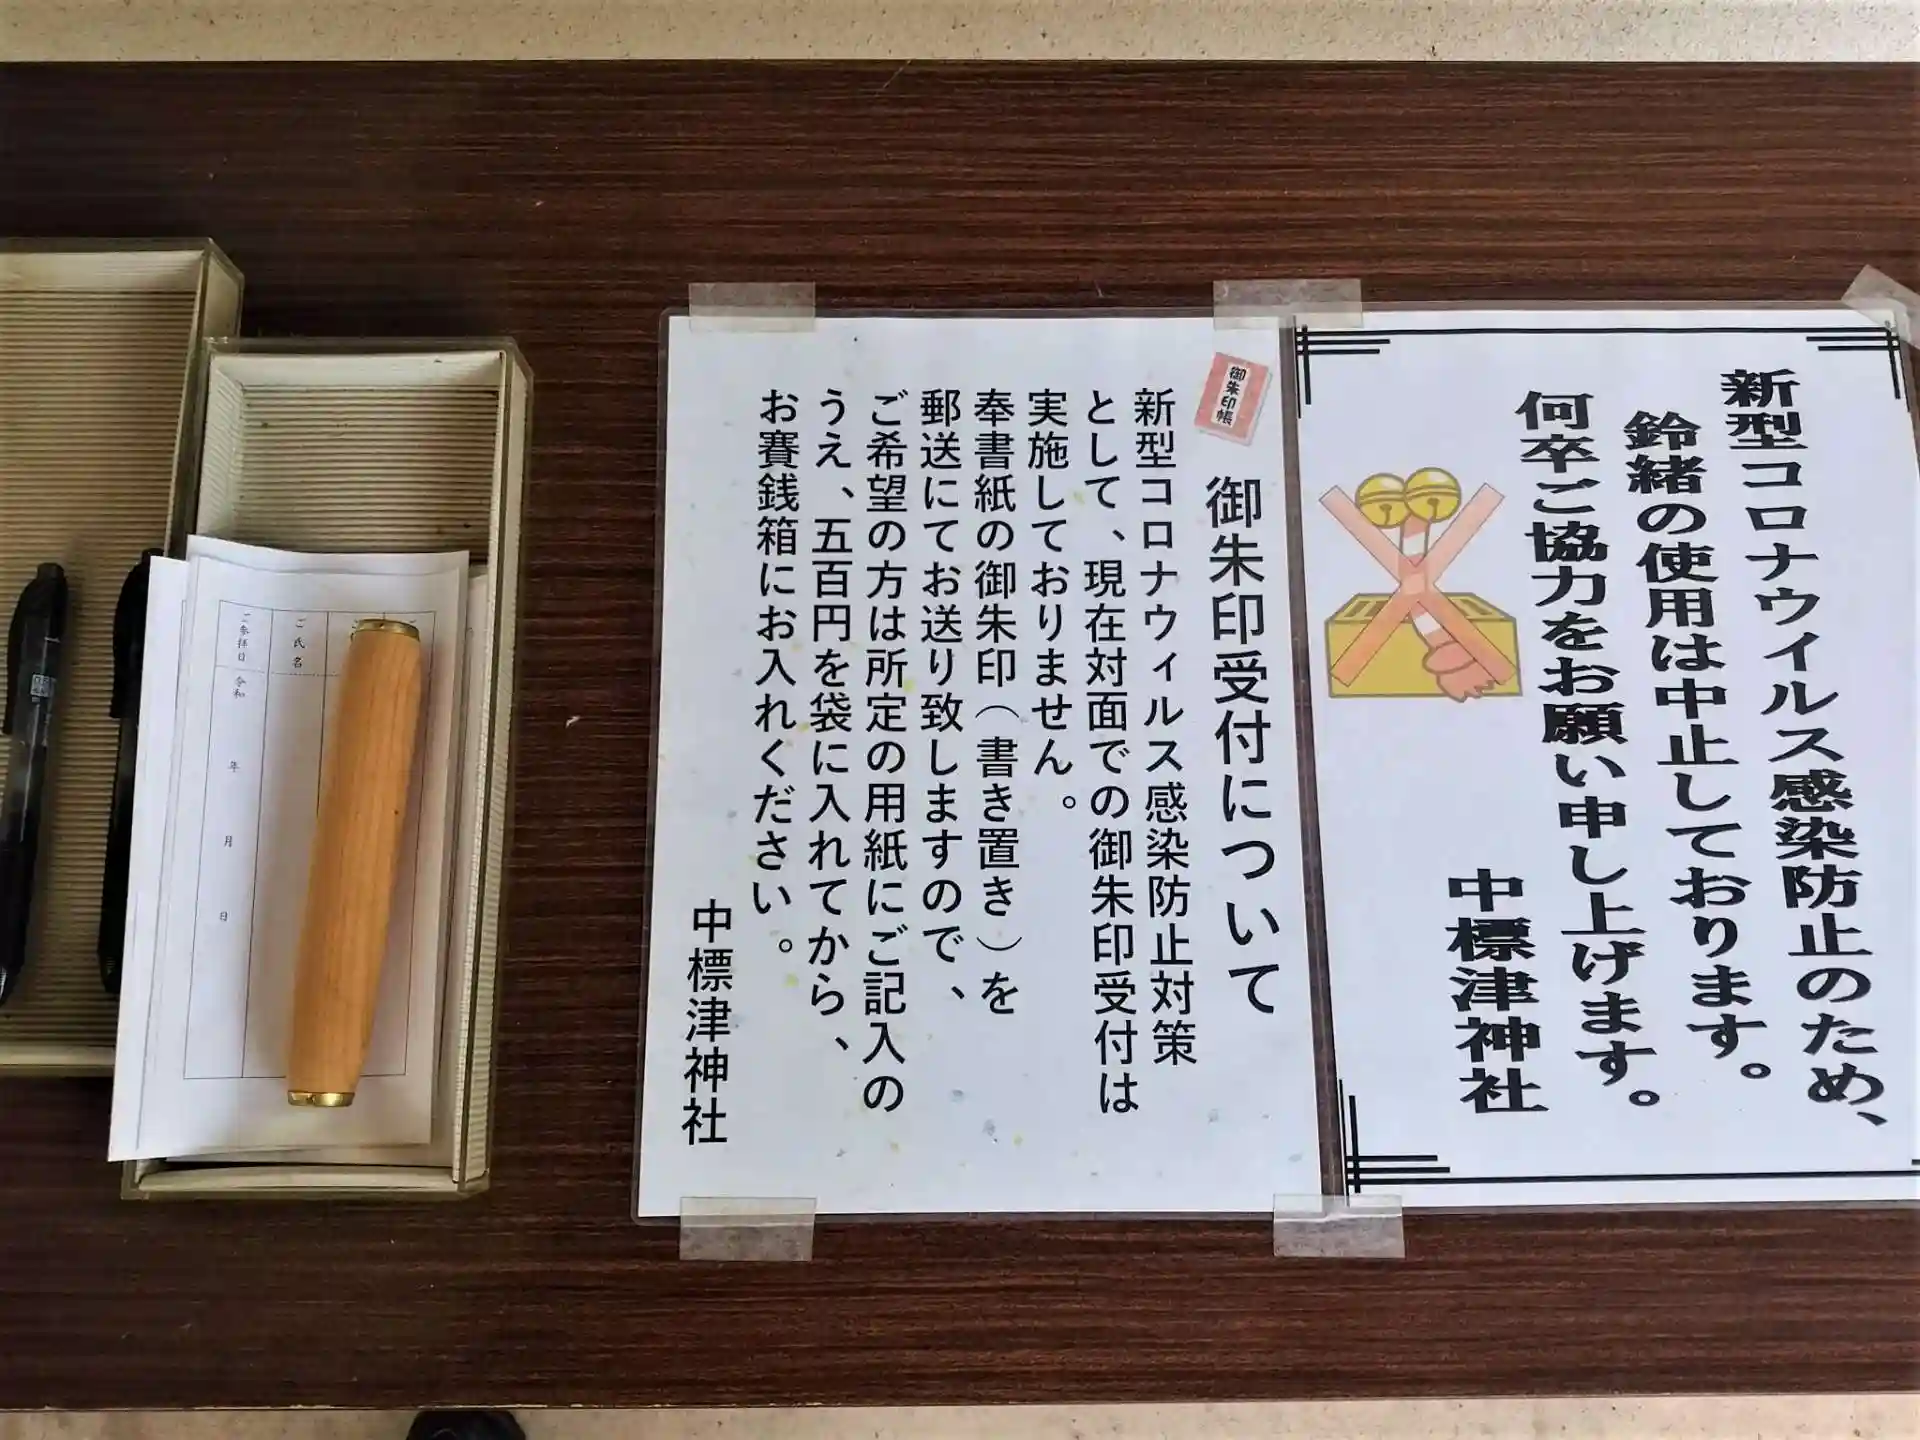 新型コロナウイルス感染防止のため、
鈴緒の使用は中止しております。
何卒ご協力をお願い申し上げます。
中標津神社
御朱印帳
御朱印受付について
新型コロナウィルス感染防止対策
として、現在対面での御朱印受付は
実施しておりません。
奉書紙の御朱印（書き置き）を
郵送にてお送り致しますので、
ご希望の方は所定の用紙にご記入の
うえ、五百円を袋に入れてから、
お賽銭箱にお入れください。
中標津神社
ご氏名
ご参拝日
令和 年 月 日